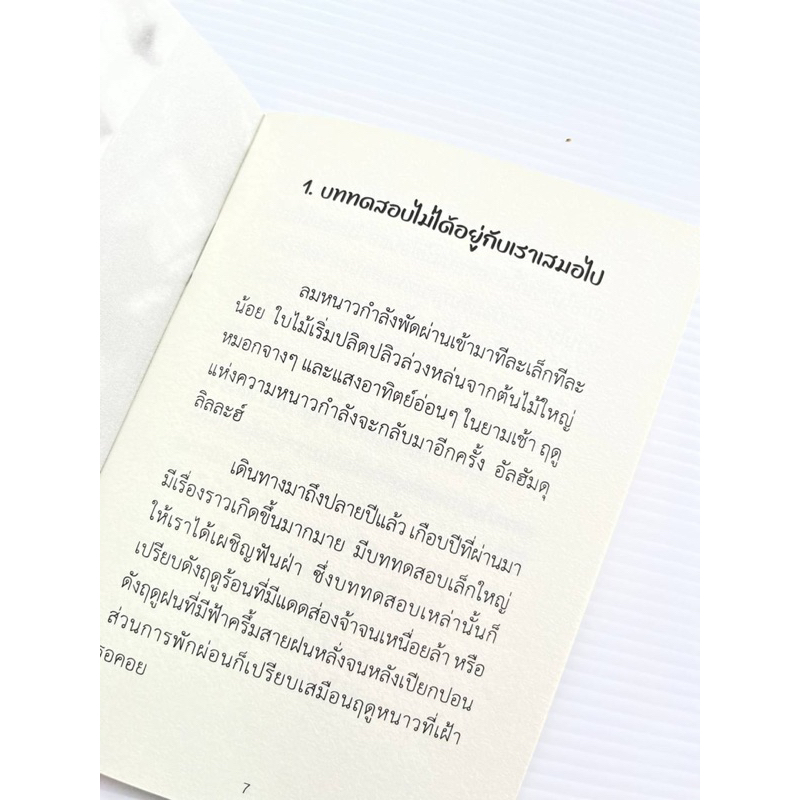 1. บททดสอบไม่ได้อยู่กับเราเสมอไป
ลมหนาวกำลังพัดผ่านเข้ามาทีละเล็กทีละ
น้อย ใบไม้เริ่มปลิดปลิวล่วงหล่นจากต้นไม้ใหญ่
หมอกจางๆ และแสงอาทิตย์อ่อนๆ ในยามเช้า ฤดู
แห่งความหนาวกำลังจะกลับมาอีกครั้ง อัลฮัมดุ
ลิลละฮ์
เดินทางมาถึงปลายปีแล้ว เกือบปีที่ผ่านมา
มีเรื่องราวเกิดขึ้นมากมาย มีบททดสอบเล็กใหญ่
ให้เราได้เผชิญฟันฝ่า ซึ่งบททดสอบเหล่านั้นก็
เปรียบดังฤดูร้อนที่มีแดดส่องจ้าจนเหนื่อยล้า หรือ
ดังฤดูฝนที่มีฟ้าครึ้มสายฝนหลั่งจนหลังเปียกปอน
ส่วนการพักผ่อนก็เปรียบเสมือนฤดูหนาวที่เฝ้า
รอคอย
7